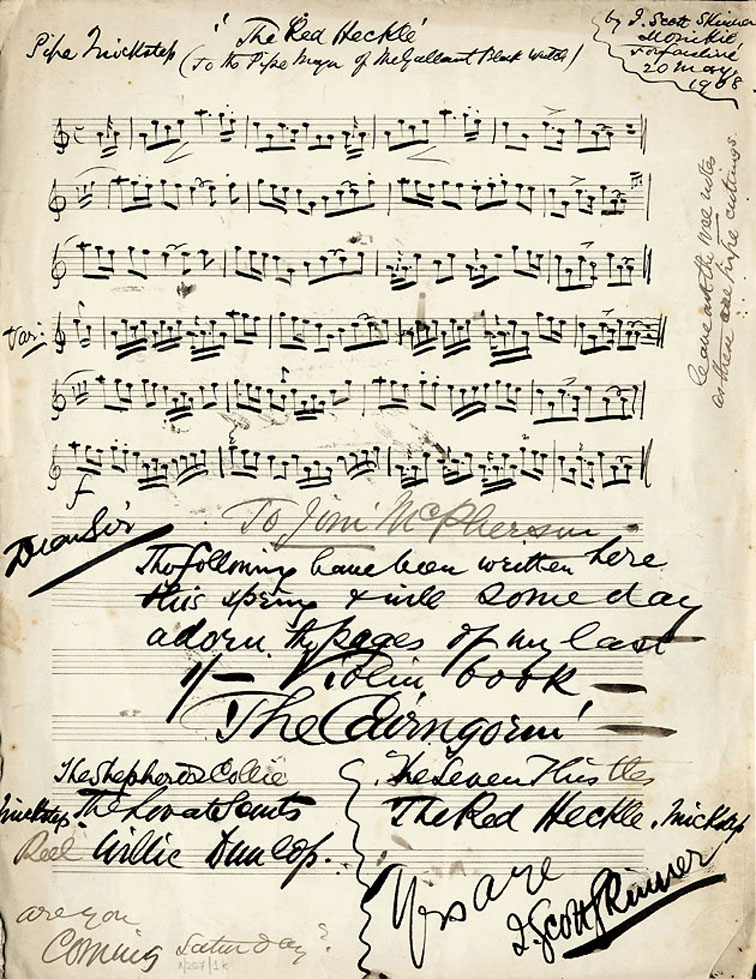 'The Red Heckle'
Pipe Quickstep (To the Pipe Major of the Gallant Black Watch)
by J. Scott Skinner
Monikie
Forfarshire
20 May
1908
leave out the wee notes
as them are pipe cuttings.
Var:
f
To Jim McPherson
Dear Sir
The following have been written here
this spring & will some day
adorn the pages of my last
1/— Violin book —
'The Cairngorm' —
The Shepherd's Collie
Quickstep The Lovat Scouts
Reel Willie Dunlop.
The Seven Thistles
The Red Heckle. Quickstep
Yrs are
J. Scott Skinner
are you
Coming Saturday?